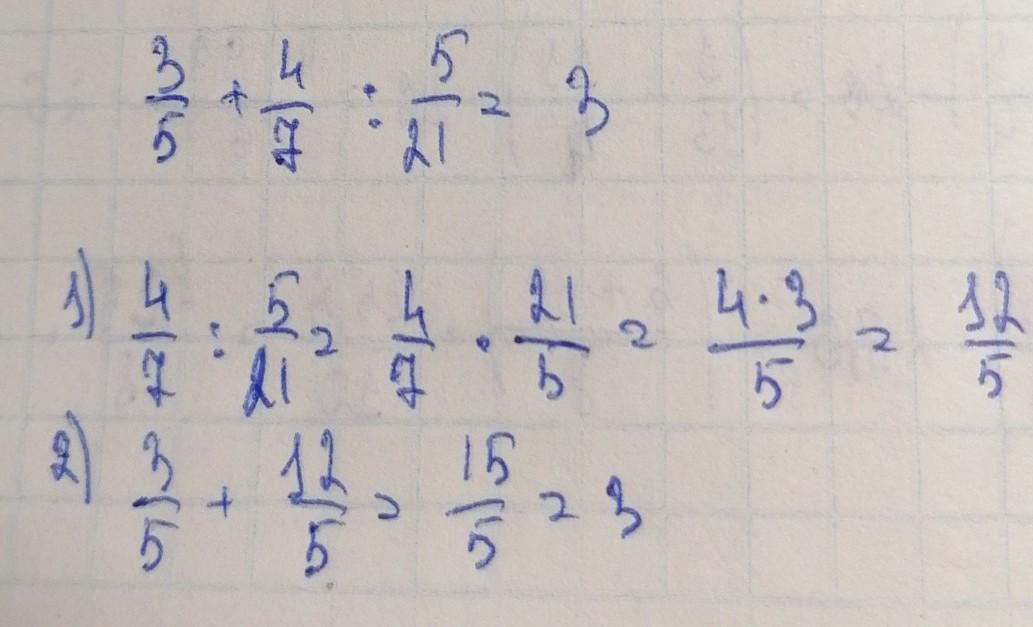 3/5 + 4/7 : 5/21 = 3
1) 4/7 : 5/21 = 4/7 · 21/5 = 4·3/5 = 12/5
2) 3/5 + 12/5 = 15/5 = 3